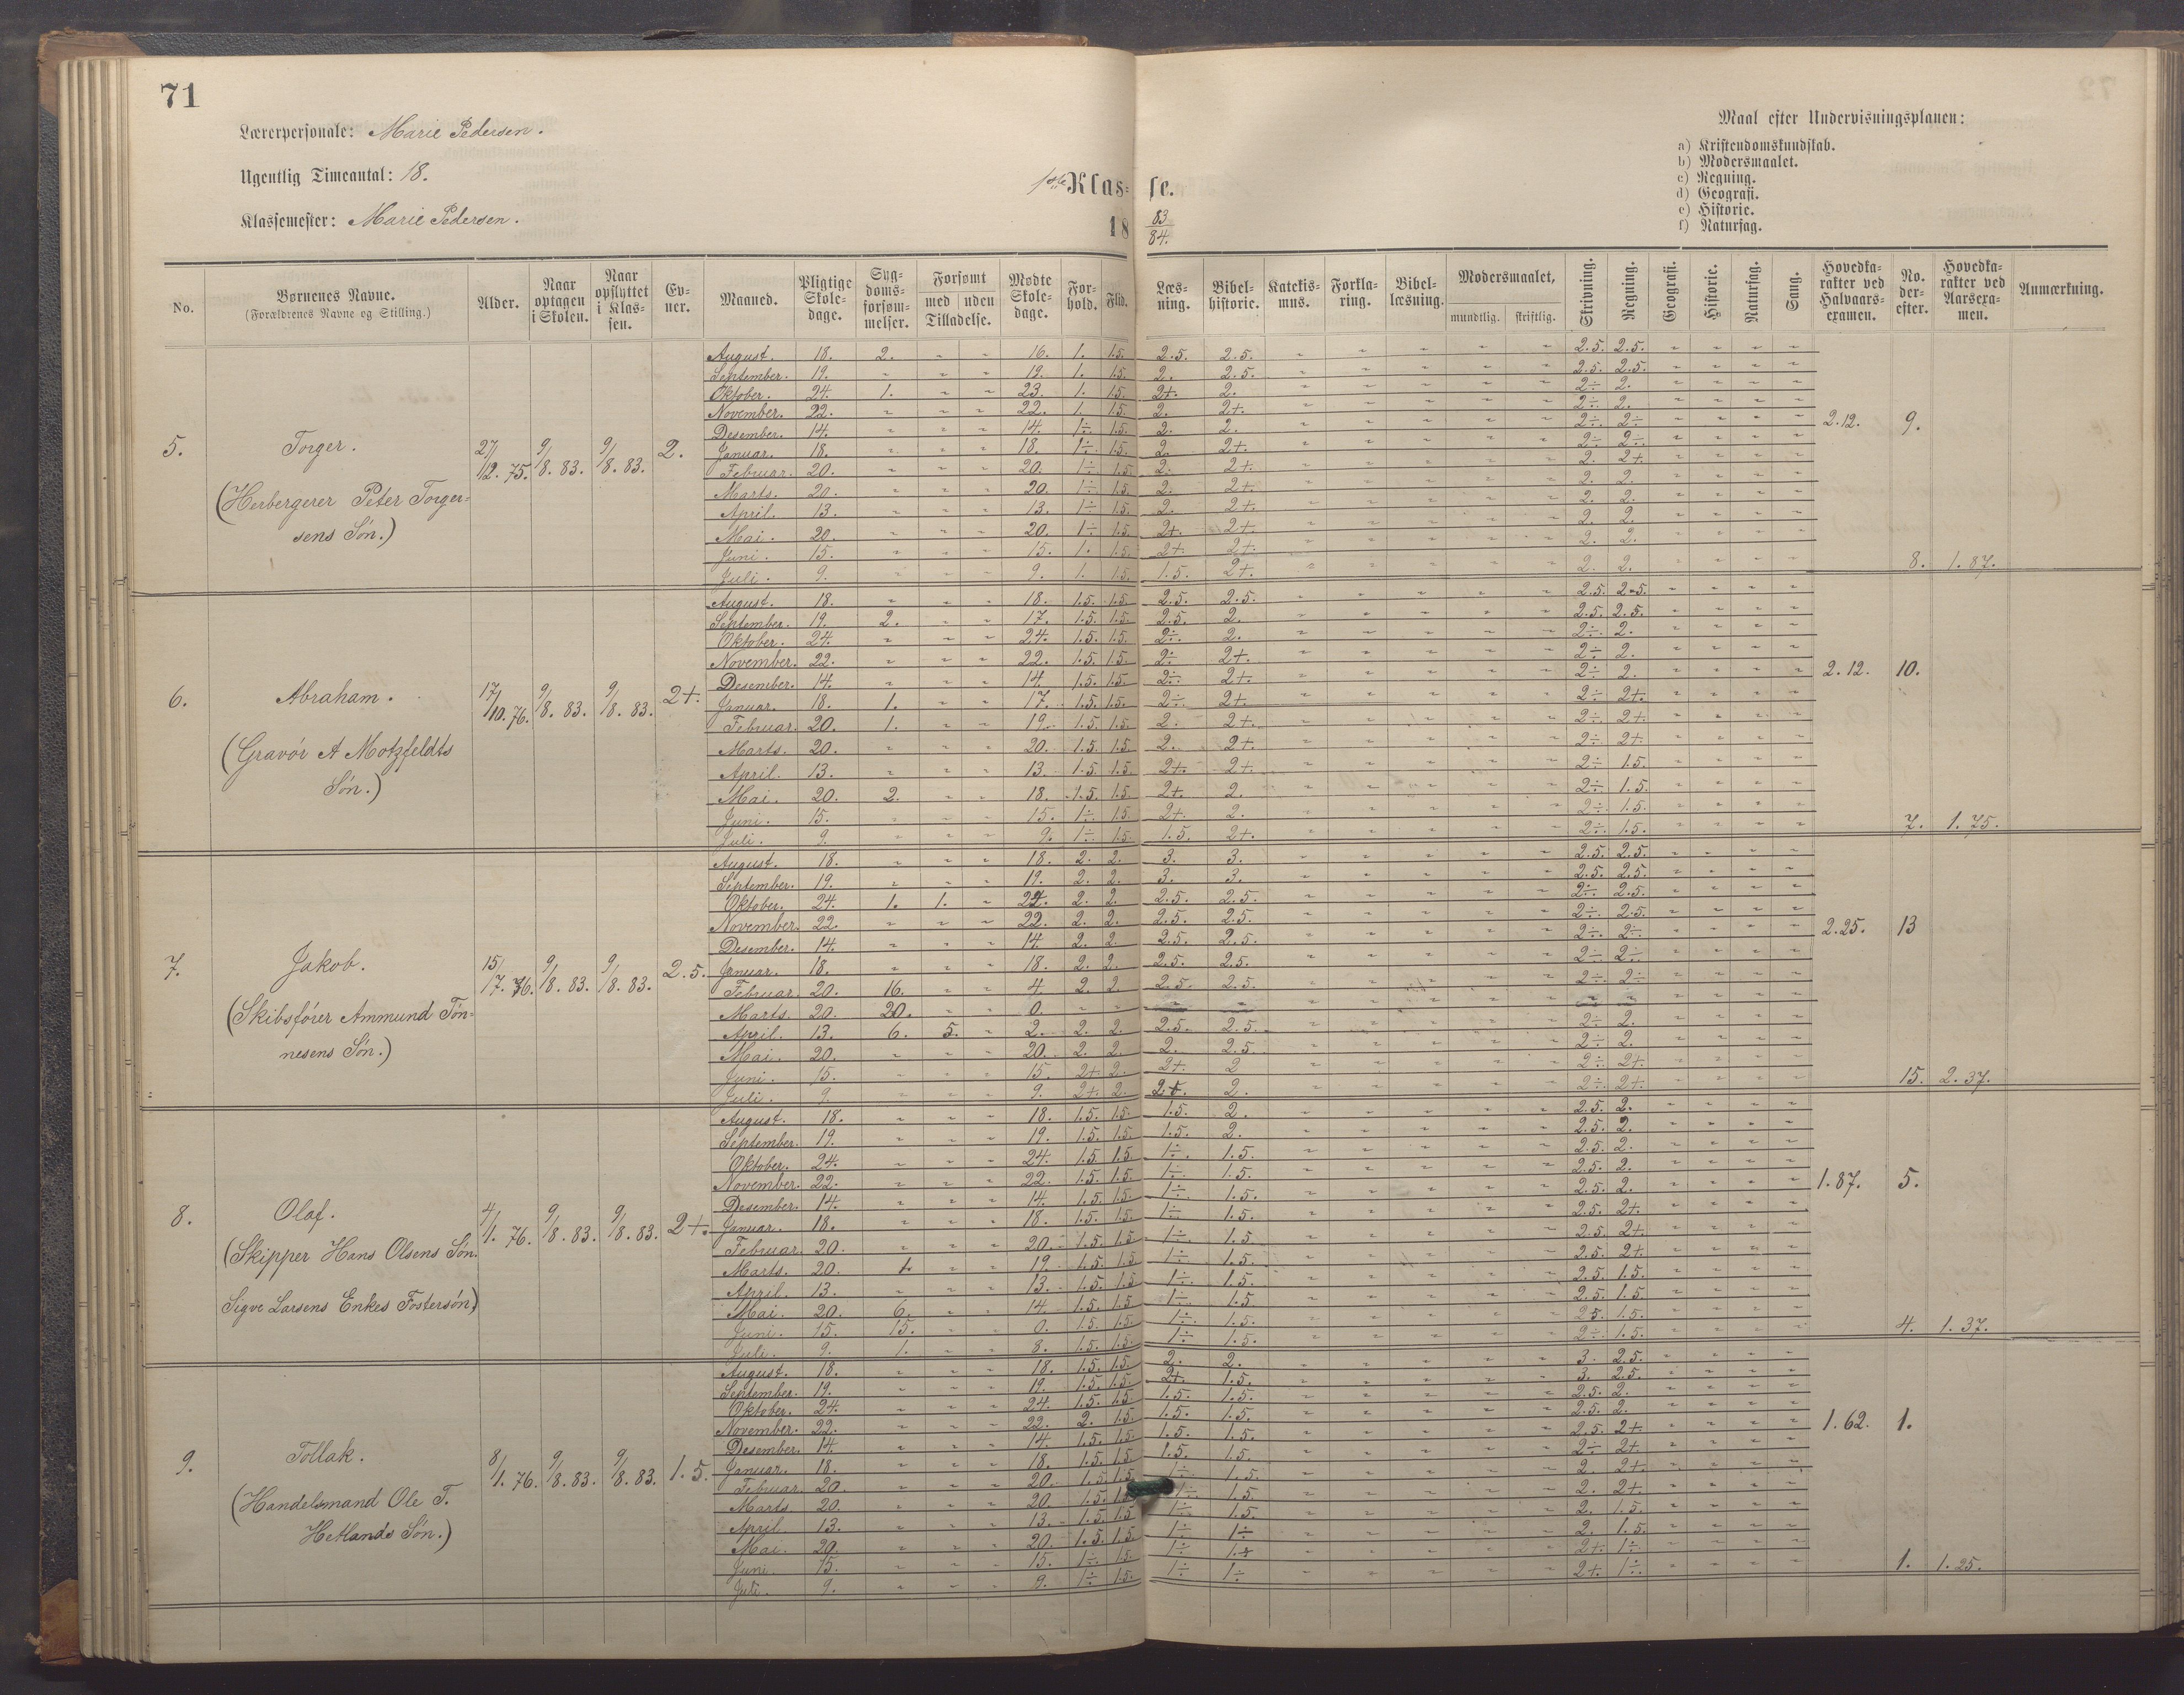 71
Lærerpersonale: Marie Pedersen.
Ugentlig Timeantal: 18.
Klassemester: Marie Pedersen.
1ste Klas= se.
18 83/84.
Maal efter Undervisningsplanen:
a) Kristendomskundskab.
b) Modersmaalet.
c) Regning.
d) Geografi.
e) Historie.
f) Naturfag.
No. | Børnenes Navne. (Forældrenes Navne og Stilling.) | Alder. | Naar optagen i Skolen. | Naar opflyttet i Klassen. | Evner. | Maaned. | Pligtige Skoledage. | Sygdomsforsømmelser. | Forsømt med Tilladelse. | Forsømt uden Tilladelse. | Mødte Skoledage. | Forhold. | Flid. | Læsning. | Bibelhistorie. | Katekismus. | Forklaring. | Bibellæsning. | Modersmaalet, mundtlig. | skriftlig. | Skrivning. | Regning. | Geografi. | Historie. | Naturfag. | Sang. | Hovedkarakter ved Halvaarsexamen. | No. derefter. | Hovedkarakter ved Aarsexamen. | Anmærkning.
5. Torger. 27/12. 75. 9/8. 83. 9/8. 83. 2.
(Herbergerer Peter Torger-
sens Søn.)
August. 18. 2. " " 16. 1. 1.5. 2.5. 2.5. " " " " " 2.5. 2.5. " " " "
September. 19. " " " 19. 1. 1.5. 2. 2.5. " " " " " 2.5. 2.5. " " " "
Oktober. 24. 1. " " 23. 1. 1.5. 2+. 2. " " " " " 2÷. 2. " " " "
November. 22. " " " 22. 1. 1.5. 2. 2+. " " " " " 2÷. 2. " " " "
Desember. 14. " " " 14. 1÷. 1.5. 2. 2. " " " " " 2÷. 2÷. " " " " 2.12. 9.
Januar. 18. " " " 18. 1÷. 1.5. 2. 2+. " " " " " 2÷. 2÷. " " " "
Februar. 20. " " " 20. 1÷. 1.5. 2. 2+. " " " " " 2. 2+. " " " "
Marts. 20. " " " 20. 1÷. 1.5. 2. 2+. " " " " " 2. 2. " " " "
April. 13. " " " 13. 1÷. 1.5. 2. 2+. " " " " " 2. 2. " " " "
Mai. 20. " " " 20. 1÷. 1.5. 2+. 2+. " " " " " 2. 2. " " " "
Juni. 15. " " " 15. 1. 1.5. 2+. 2+. " " " " " 2. 2. " " " "
Juli. 9. " " " 9. 1. 1.5. 1.5. 2+. " " " " " 2. 2. " " " " 8. 1.87.
6. Abraham. 17/10. 76. 9/8. 83. 9/8. 83. 2+.
(Gravør A Motzfeldts
Søn.)
August. 18. " " " 18. 1.5. 1.5. 2.5. 2.5. " " " " " 2.5. 2.5. " " " "
September. 19. 2. " " 17. 1.5. 1.5. 2.5. 2. " " " " " 2.5. 2.5. " " " "
Oktober. 24. " " " 24. 1.5. 1.5. 2÷. 2. " " " " " 2÷. 2. " " " "
November. 22. " " " 22. 1.5. 1.5. 2÷ 2+. " " " " " 2÷ 2. " " " "
Desember. 14. " " " 14. 1.5. 1.5. 2÷. 2+. " " " " " 2÷ 2. " " " " 2.12. 10.
Januar. 18. 1. " " 17. 1.5. 1.5. 2÷. 2+. " " " " " 2÷ 2+. " " " "
Februar. 20. 1. " " 19. 1.5. 1.5. 2. 2+. " " " " " 2÷ 2+. " " " "
Marts. 20. " " " 20. 1.5. 1.5. 2. 2+. " " " " " 2÷ 2+. " " " "
April. 13. " " " 13. 1.5. 1.5. 2+. 2+. " " " " " 2÷ 1.5. " " " "
Mai. 20. 2. " " 18. 1.5. 1.5. 2+. 2. " " " " " 2÷. 1.5. " " " "
Juni. 15. " " " 15. 1÷. 1.5. 2+. 2. " " " " " 2÷. 1.5. " " " "
Juli. 9. " " " 9. 1÷. 1.5. 1.5. 2+. " " " " " 2÷. 1.5. " " " " 7. 1.75.
7. Jakob. 15/7. 76. 9/8. 83. 9/8. 83. 2.5.
(Skibsfører Ammund Tøn-
nesens Søn.)
August. 18. " " " 18. 2. 2. 3. 3. " " " " " 2.5. 2.5. " " " "
September. 19. " " " 19. 2. 2. 3. 3. " " " " " 2.5. 2.5. " " " "
Oktober. 24. 1. 1. " 22. 2. 2. 2.5. 2.5. " " " " " 2÷. 2.5. " " " "
November. 22. " " " 22. 2. 2. 2.5. 2.5. " " " " " 2÷. 2.5. " " " "
Desember. 14. " " " 14. 2. 2. 2.5. 2.5. " " " " " 2÷. 2÷. " " " " 2.25. 13
Januar. 18. " " " 18. 2. 2. 2.5. 2.5. " " " " " 2÷ 2÷ " " " "
Februar. 20. 16. " " 4. 2. 2. 2.5. 2.5. " " " " " 2÷ 2÷ " " " "
Marts. 20. 20. " " 0. " " " " " " " " " " " " " " "
April. 13. 6. 5. " 2. 2. 2. 2.5. 2.5. " " " " " 2÷ 2. " " " "
Mai. 20. " " " 20. 2. 2. 2. 2.5 " " " " " 2÷ 2. " " " "
Juni. 15. " " " 15. 2+. 2. 2+. 2 " " " " " 2÷. 2+. " " " "
Juli. 9. " " " 9. 2+. 2. 2+. 2. " " " " " 2÷. 2+. " " " " 15. 2.37.
8. Olaf. 4/1. 76. 9/8. 83. 9/8. 83. 2+.
(Skipper Hans Olsens Søn.
Sigve Larsens Enkes Fostersøn)
August. 18. " " " 18. 1.5. 1.5. 1.5. 2. " " " " " 2.5. 2. " " " "
September. 19. " " " 19. 1.5. 1.5. 1.5. 2. " " " " " 2.5. 2. " " " "
Oktober. 24. " " " 24. 1.5. 1.5. 1÷. 1.5. " " " " " 2.5. 2. " " " "
November. 22. " " " 22. 1.5. 1.5. 1÷. 1.5. " " " " " 2.5. 2. " " " "
Desember. 14. " " " 14. 1.5. 1.5. 1÷. 1.5. " " " " " 2.5. 2. " " " " 1.87. 5.
Januar. 18. " " " 18. 1.5. 1.5. 1÷ 1.5. " " " " " 2.5. 2+. " " " "
Februar. 20. " " " 20. 1.5. 1.5 1÷. 1.5 " " " " " 2.5. 2+. " " " "
Marts. 20. 1. " " 19. 1.5. 1.5 1÷. 1.5. " " " " " 2.5. 2+. " " " "
April. 13. " " " 13. 1.5. 1.5 1÷. 1.5. " " " " " 2.5. 1.5. " " " "
Mai. 20. 6. " " 14. 1.5. 1.5 1÷. 1.5 " " " " " 2.5. 1.5 " " " "
Juni. 15. 15. " " 0. 1.5. 1.5. 1÷. 1.5. " " " " " 2.5. 1.5. " " " "
Juli. 9. 1. " " 8. 1.5. 1.5. 1÷ 1.5. " " " " " 2÷. 1.5. " " " " 4. 1.37.
9. Tollak. 8/1. 76. 9/8. 83. 9/8. 83. 1.5.
(Handelsmand Ole T.
Hetlands Søn.)
August. 18. " " " 18. 1.5. 1.5. 2. 2. " " " " " 3. 2.5. " " " "
September. 19. " " " 19. 1.5. 1.5. 2+. 1.5. " " " " " 3. 2.5. " " " "
Oktober. 24. " " " 24. 1.5. 1.5 1.5. 1.5. " " " " " 2.5. 2. " " " "
November. 22. " " " 22. 2. 1.5. 1.5. 1.5. " " " " " 2.5. 2. " " " "
Desember. 14. " " " 14. 1.5. 1.5. 1.5. 1.5. " " " " " 2.5. 2+. " " " " 1.62. 1.
Januar. 18. " " " 18. 1.5. 1.5. 1.5. 1.5. " " " " " 2÷ 2+. " " " "
Februar. 20. " " " 20. 1.5. 1.5. 1÷ 1.5. " " " " " 2. 2+. " " " "
Marts 20. " " " 20. 1.5. 1÷ 1.5. " " " " " 2. 2+. " " " "
April. 13. " " " 13. 1.5. 1.5 1÷ 1.5. " " " " " 2. 1.5. " " " "
Mai. 20. " " " 20. 1.5. 1.5. 1÷ 1÷ " " " " " 2. 1.5. " " " "
Juni. 15. " " " 15. 1÷. 1.5. 1÷ " " " " " 2+. 1÷. " " " "
Juli. 9. " " " 9. 1÷. 1.5. 1÷ 1÷ " " " " " 2+. 1÷. " " " " 1. 1.25.